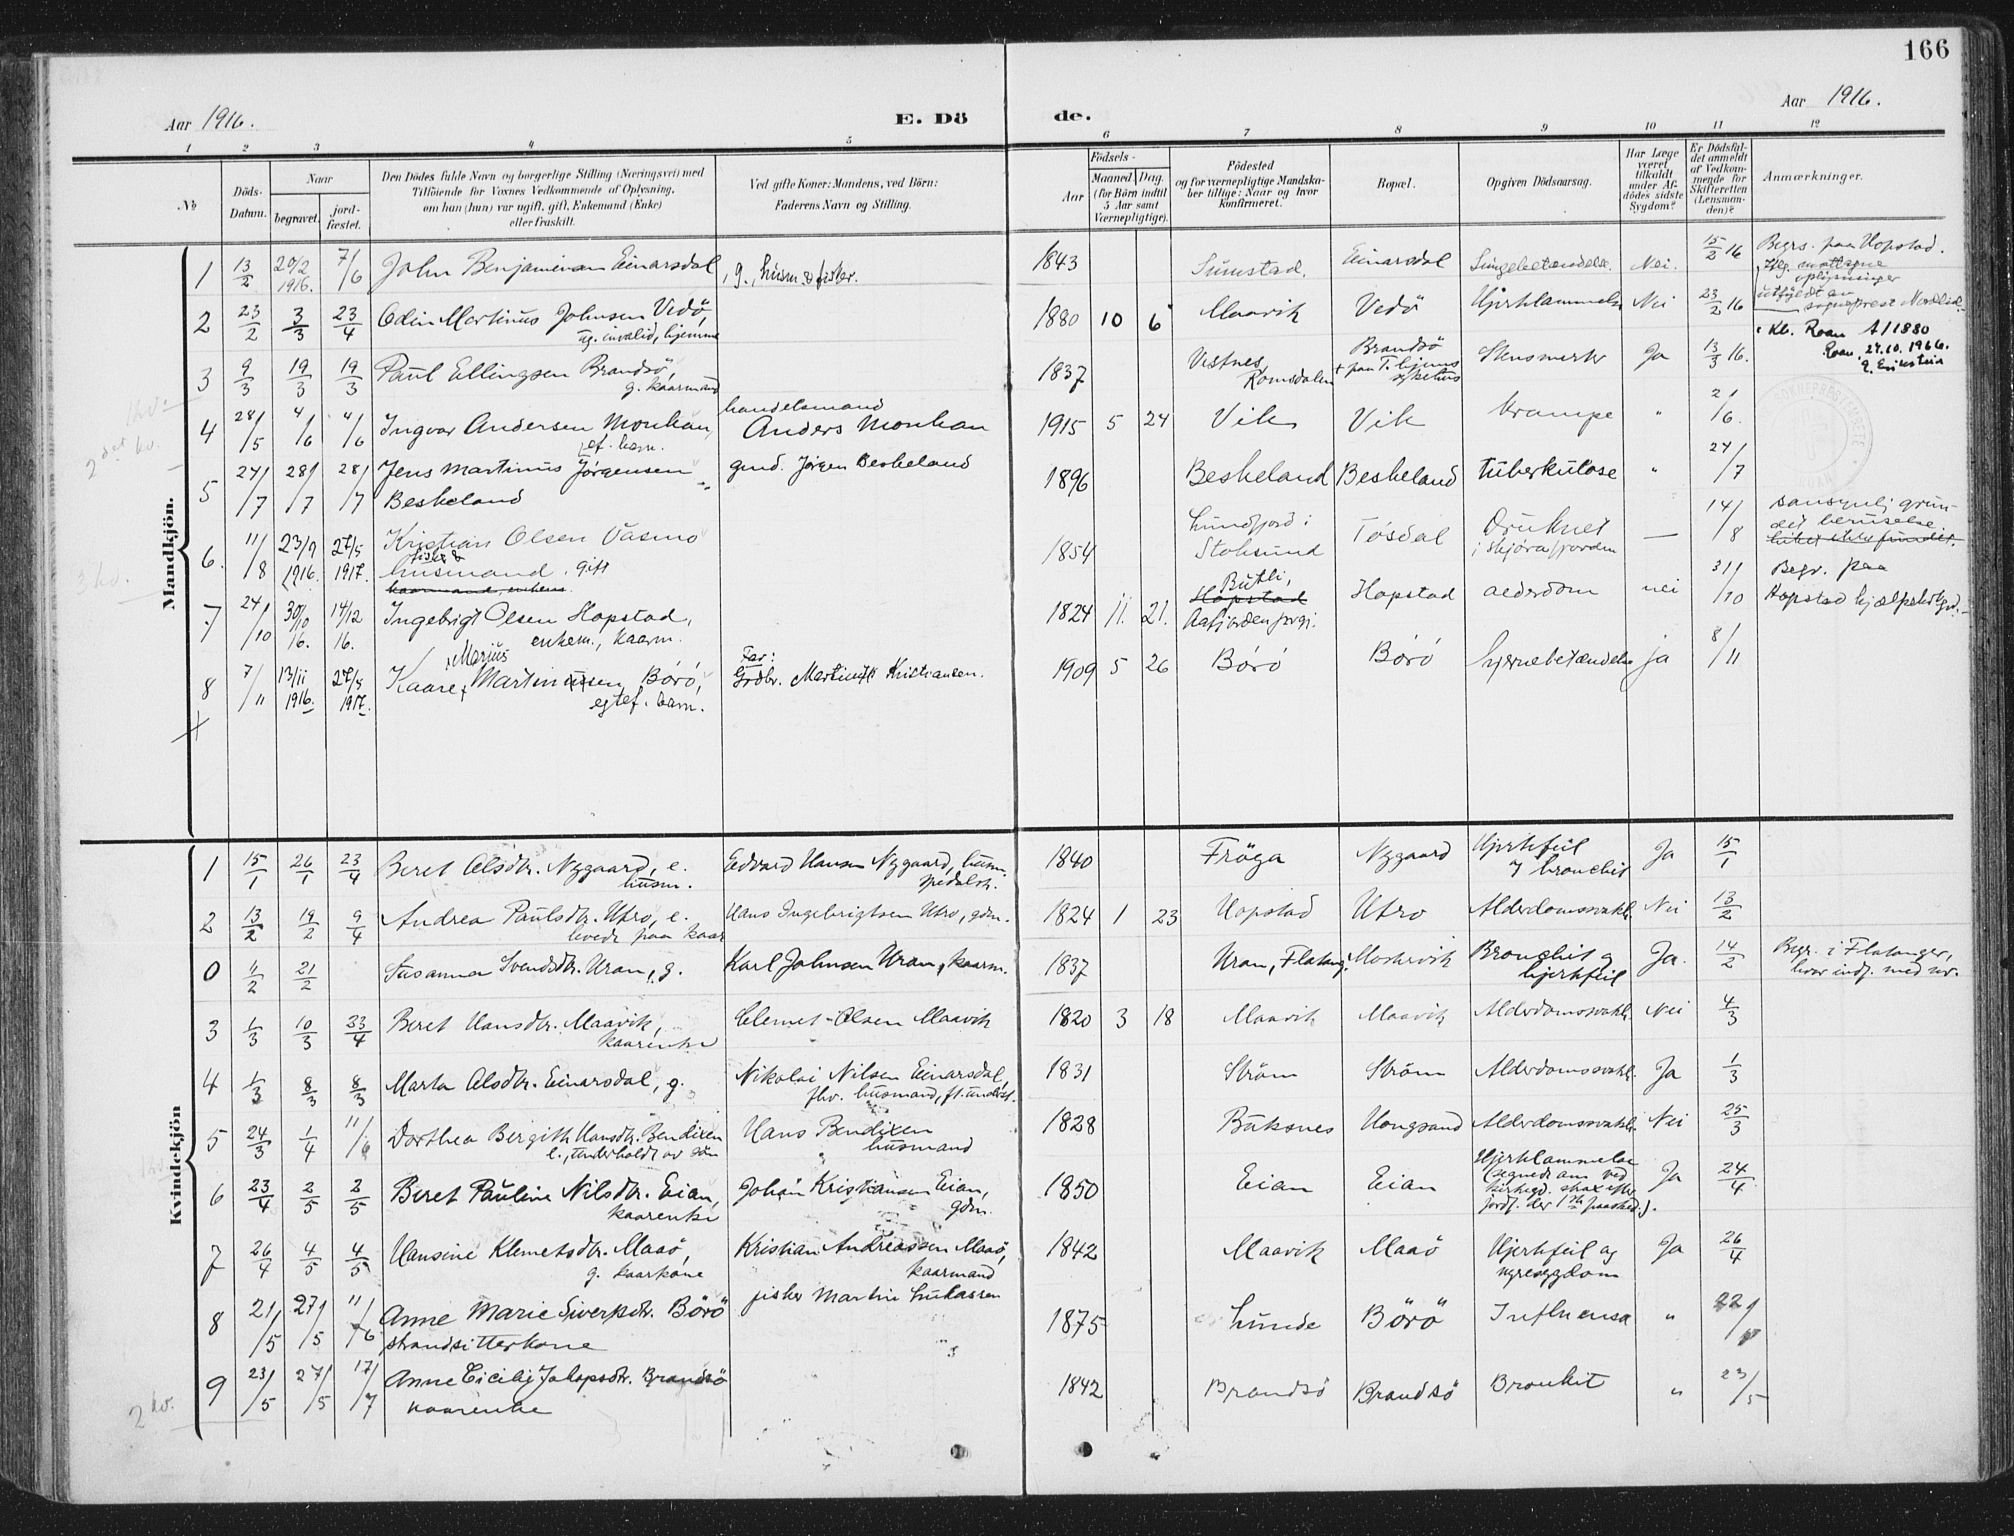 166
Aar 1916.
E. Dö de.
Aar 1916.
1 2 3 4 5 6 7 8 9 10 11 12
№
Döds-Datum.
Naar
begravet.
jord-fæstet.
Den Dödes fulde Navn og borgerlige Stilling (Næringsvei) med
Tilföiende for Voxnes Vedkommende af Oplysning,
om han (hun) var ugift, gift, Enkemand (Enke)
eller fraskilt.
Ved gifte Koner: Mandens, ved Börn:
Faderens Navn og Stilling.
Födsels-
Aar
Maaned. Dag.
(for Börn indtil
5 Aar samt
Værnepligtige).
Födested
og for værnepligtige Mandska-
ber tillige: Naar og hvor
konfirmeret.
Bopæl.
Opgiven Dödsaarsag.
Har Læge
været
tilkaldt
under Af-
dödes sidste
Sygdom?
Er Dödsfal-
det anmeldt
af Vedkom-
mende for
Skifteretten
(Lensman-
den)?
Anmærkninger.
Mandkjön.
1 13/2 20/2 1916. 7/6 John Benjaminsen Einarsdal, g., husm. & fisker. 1843 Sumstad. Einarsdal Lungebetændelse. Nei. 15/2 16 Begrs. paa Hopstad.
oplysninger
utfyldt av
2 23/2 3/3 23/4 Odin Martinus Johnsen Vedö, 1880 10 6 Maavik Vedö Hjertelammelse Nei 23/2 16
ug. invalid, hjemme
Kl. Roan A/1880
Roan, 27.10.1966.
3 9/3 19/3 19/3 Paul Ellingsen Brandsö, 1837 Vestnes, Romsdalen Brandsö Ja 13/3 16.
g. kaarmand
+ paa T.hjems sykehus
4 28/5 4/6 4/6 Ingvar Andersen Monkan, handelsmand Anders Monkan 1915 5 24 Vik Vik Krampe " 2/6.
ef. barn.
5 24/7 28/7 28/7 Jens Martinus Jörgensen gmd. Jörgen Beskeland 1896 Beskeland Beskeland tuberkulose " 24/7
Beskeland
6. 11/8 23/9 1916. 27/5 1917. Kristian Olsen Vasmo 1854 Lundfjord i Stoksund Tösdal Druknet i Skjörafjorden — 14/8 sansynlj grun-
det beruselse.
fisker &
husmand. gift
kaarmand, enkem.
7 24/10 30/10 16. 14/12 16. Ingebrigt Olsen Hopstad, 1824 11. 21. Butli, Hopstad Hopstad alderdom nei 31/10 Begr. paa
Hopstad hjælpekirkegd.
enkem., kaarm.
Aafjorden prgj.
8 7/11 13/11 1916. 27/5 1917. Kaare Marius Martinussen Börö, Far: Grdbr. Martinus Kristiansen. 1909 5 26 Börö Börö hjernebetændelse ja 8/11
egtef. barn.
Kvindekjön
1 15/1 26/1 23/4 Beret Olsdtr. Nygaard, e. Edvard Hansen Nygaard, husm. 1840 Fröya Nygaard Hjertefeil Ja 15/1
husm. spedalsk. & bronchit
2 13/2 19/2 9/4 Andrea Paulsdtr. Utro, e. Hans Ingebrigtsen Utro, gdm. 1824 1 23 Hopstad Utro Alderdomssvakh. Nei 13/2
levede paa kaar
0 11/2 21/2 Susanna Svendsdtr. Uran, g. Karl Johnsen Uran, kaarm. 1837 Uran, Flatang. Bronchit og Ja. 14/2 Begr. i Flatanger,
hjertefeil hvor indf. med nr.
3 1/3 10/3 23/4 Beret Hansdtr. Maavik, Clemet Olsen Maavik 1820 3 18 Maavik Maavik Alderdomssvakh. Nei 4/3
kaarenke
4 1/3 8/3 8/3 Marta Olsdtr. Einarsdal, g. Nikolai Nilsen Einarsdal, 1831 Ström Ström Alderdomssvakh. Ja 1/3
fhv. husmand, ft. underst.
5 24/3 1/4 11/6 Dorthea Bergith Hansdtr. Bendixen Hans Bendixen 1828 Buksnes Hongsand Alderdomssvakh. Nei 25/3
e., underholdt av sön husmand
6 23/4 2/5 2/5 Beret Pauline Nilsdtr. Eian, Johan Kristiansen Eian, 1850 Eian Eian Hjertelammelse Ja 24/4
kaarenke gdm.
(segnede om ved
kirkegd. strax efter
7 26/4 4/5 4/5 Hansine Klemetsdtr. Maaö, Kristian Andreassen Maaö, 1842 Maavik Maaö Hjertefeil og Ja 26/4
g. kaarkone kaarmand nyresygdom
8 21/5 27/5 11/6 Anne Marie Siverpdtr. Börö fisker Martin Lukassen 1875 Lunde Börö Influensa " 22/
strandsitterkone
9 23/5 27/5 17/7 Anne Cicilie Jakopsdtr. Brandsö 1842 Brandsö Brandsö Bronkit " 23/5
kaarenke
2 kv.